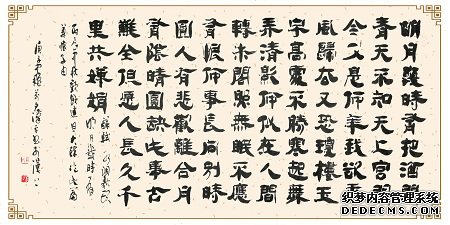 明月幾時有把酒問
青天不知天上宮闕
今夕是何年我欲乘
風歸去又恐瓊樓玉
宇高處不勝寒起舞
弄清影何似在人間
轉朱閣照無眠不應
有恨何事長向別時
圓人有悲歡離合月
有陰晴圓缺此事古
難全但願人長久千
里共嬋娟
织梦内容管理系统
DEDECMS.COM